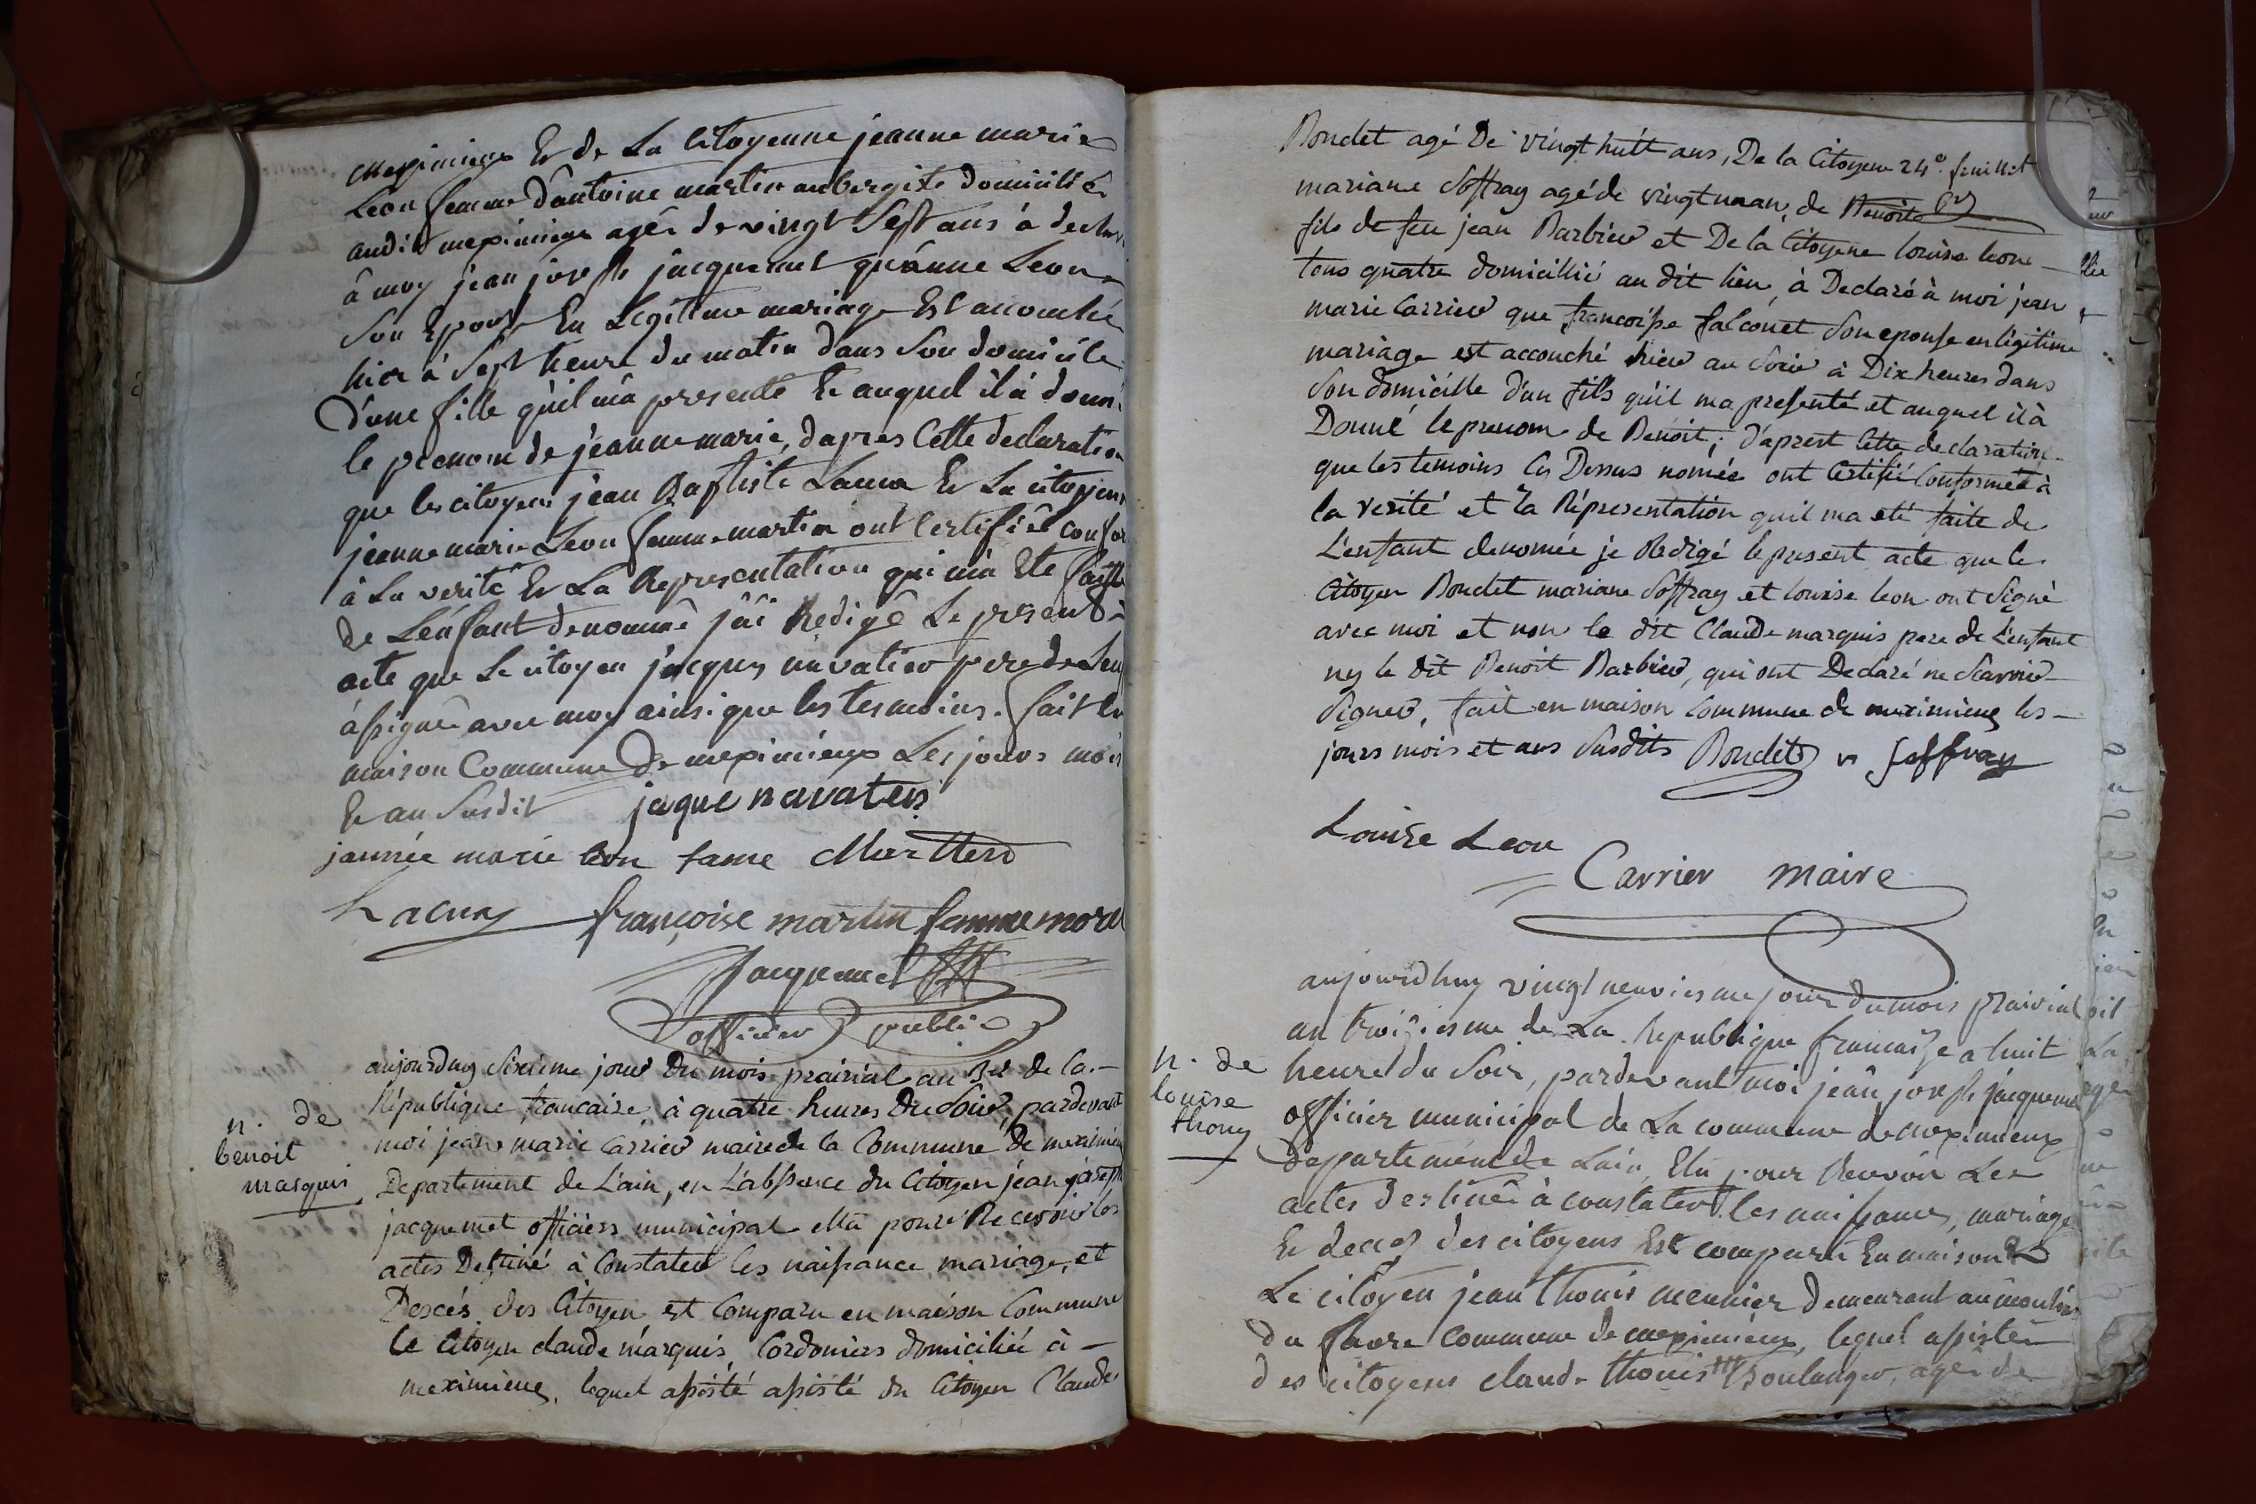 meximieux Et de La Citoyenne jeanne marie
Leon femme d'antoine martin aubergiste domicilié
audit meximieux agés de vingt Sept ans à declaré
à moy jean joseph jacquemet qu'anne Leon
Son Epouse En Legitime mariage Est accouchée
hier à Sept heure du matin dans Son domicile
d'une fille qu'il m'a presenté Et auquel il à donné
le prenom de jeanne marie, dapres Cette declaration
que les citoyens jean Baptiste Lacua Et La citoyenne
jeanne marie Leon femme martin ont Certifiés confor
à La verité Et La Representation qui m'a Eté faitte
de L'enfant denommé j'ai Redigé Le present
acte que Le citoyen jacques navatier pere de Len
à signé avec moy ainsi que les tesmoins. fait En
maison Commune De meximieux Les jours mois
Et an Susdit jaque navatier
jannée marie leon fame Martten
Lacua françoise martin femme morel
Jacquemet
officier public
n. de
benoit
marquis
aujourdhuy Sixieme jour du mois prairial an 3e de la
République française, à quatre heures du Soir, pardevant
moi jean marie Carrier maire de la Commune De meximieux
Departement de L'ain, en L'absence du Citoyen jean joseph
jacquemet officiers municipal Elu pour Recevoir les
actes Destiné à Constater les naissance mariage, et
Descés des Citoyen, est Comparu en maison Commune
le Citoyen claude marquis Cordoniers domiciliée à
meximieux, lequel assisté assisté du Citoyen Claude
Bondet agé De vingt huit ans, De la Citoyene 24e feuillet
mariane Soffray agé de vingt un an, de Benoit
fils de feu jean Barbier et De la Citoyene louise leone
tous quatre domicillié au dit lieu, à Declaré à moi jean
marie Carrier que françoise falconet Son epouse en legitime
mariage est accouché hier au Soir à Dix heures dans
Son domicille d'un fils qu'il ma presenté et auquel il à
Donné le prenom de Benoit; d'aprest Cette declaration
que les temoins Ces Dessus nomée ont Certifié Conformée à
la verité et la Répresentation qu'il ma eté faite de
L'enfant denomée je Redigé le present acte que le
Citoyen Bondet mariane Soffray et louise leon ont Signé
avec moi et non le dit Claude marquis pere de L'enfant
ny le dit Benoit Barbier, qui ont Declaré ne Scavoir
Signer, fait en maison Commune de meximieux les
jours mois et ans Susdits Bondet Joffray
Louise Leon
Carrier maire
n. de
louise
thony
aujourdhuy vingt neuviesme jour du mois prairial
an troisiesme de La Republique française a huit
heure du Soir, pardevant moi jean joseph jacquemet
officier municipal de La commune de meximieux
departement de Lain, Elu pour Recevoir Les
actes destinés à constater les naissances, mariage
Et deces des citoyens Est comparu En maison
Le citoyen jean thonis meunier demeurant au moulin
du favre Commune de meximieux, lequel assisté
des citoyens claude thonis Boulanger, agé de